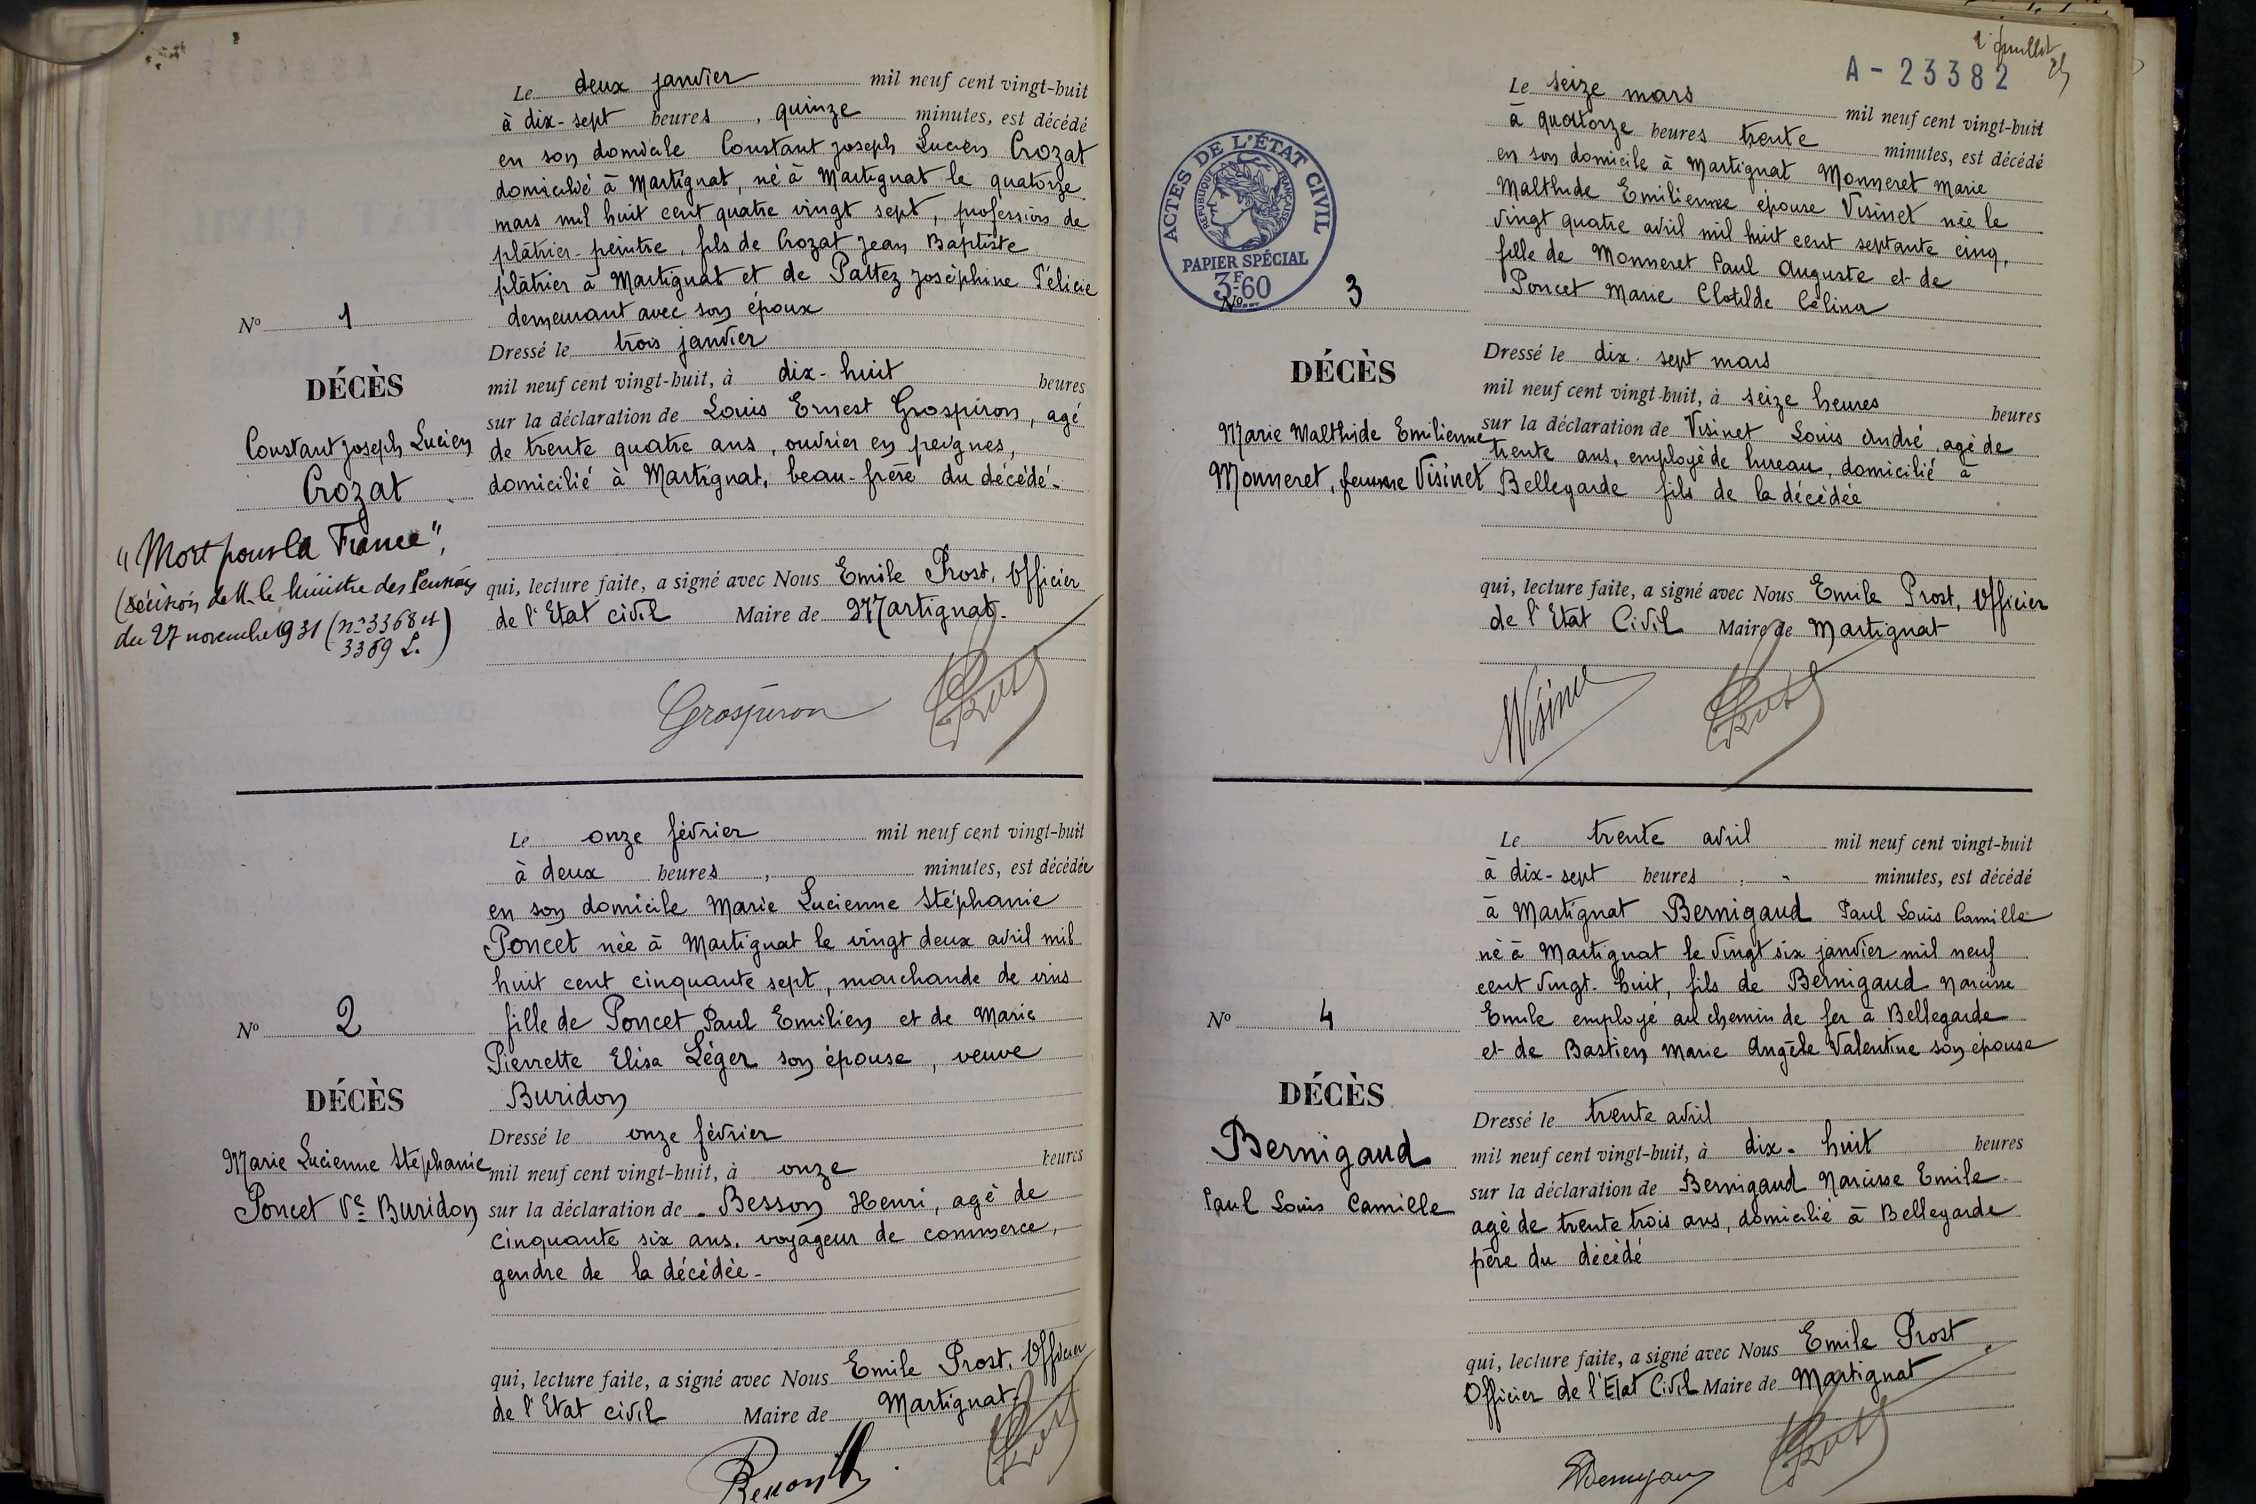 Le deux janvier mil neuf cent vingt-huit
à dix-sept heures, quinze minutes, est décédé
en son domicile Constant Joseph Lucien Crozat
domicilié à Martignat, né à Martignat le quatorze
mars mil huit cent quatre vingt sept, profession de
plâtrier-peintre, fils de Crozat Jean Baptiste
plâtrier à Martignat et de Pattez Joséphine Félicie
demeurant avec son époux
Dressé le trois janvier
mil neuf cent vingt-huit, à dix-huit heures
sur la déclaration de Louis Ernest Grospiron, agé
de trente quatre ans, ouvrier en peignes,
domicilié à Martignat, beau-frère du décédé-
qui, lecture faite, a signé avec Nous Emile Prost, Officier
de l'Etat civil Maire de Martignat.
Grospiron Prost
No 1
DÉCÈS
Constant Joseph Lucien
Crozat
"Mort pour la France",
(Décision de M. le Ministre des Pensions
du 27 novembre 1931 (nos 3368 et
3369 L.)
Le onze février mil neuf cent vingt-huit
à deux heures, minutes, est décédée
en son domicile Marie Lucienne Stéphanie
Poncet née à Martignat le vingt deux avril mil
huit cent cinquante sept, marchande de vins
fille de Poncet Paul Emilien et de Marie
Pierrette Elisa Léger son épouse, veuve
Buridon
Dressé le onze février
mil neuf cent vingt-huit, à onze heures
sur la déclaration de Besson Henri, agé de
cinquante six ans, voyageur de commerce,
gendre de la décédée-
qui, lecture faite, a signé avec Nous Emile Prost, Officier
de l'Etat civil Maire de Martignat
Prost
No 2
DÉCÈS
Marie Lucienne Stéphanie
Poncet Ve Buridon
2 juillet
A-23382
ACTES DE L'ÉTAT CIVIL
RÉPUBLIQUE FRANÇAISE
PAPIER SPÉCIAL
3F60
Le seize mars mil neuf cent vingt-huit
à quatorze heures trente minutes, est décédé
en son domicile à Martignat Monneret Marie
Malthide Emilienne épouse Visinet née le
vingt quatre avril mil huit cent septante cinq,
fille de Monneret Paul Auguste et de
Poncet Marie Clotilde Célina
Dressé le dix-sept mars
mil neuf cent vingt-huit, à seize heures heures
sur la déclaration de Visinet Louis André, agé de
trente ans, employé de bureau, domicilié à
Bellegarde fils de la décédée
qui, lecture faite, a signé avec Nous Emile Prost, Officier
de l'Etat Civil Maire de Martignat
Visinet Prost
No 3
DÉCÈS
Marie Malthide Emilienne
Monneret, femme Visinet
Le trente avril mil neuf cent vingt-huit
à dix-sept heures, - minutes, est décédé
à Martignat Bernigaud Paul Louis Camille
né à Martignat le vingt six janvier mil neuf
cent vingt-huit, fils de Bernigaud Narcisse
Emile employé au chemin de fer à Bellegarde
et de Bastien Marie Angèle Valentine son épouse
Dressé le trente avril
mil neuf cent vingt-huit, à dix-huit heures
sur la déclaration de Bernigaud Narcisse Emile
agé de trente trois ans, domicilié à Bellegarde
père du décédé
qui, lecture faite, a signé avec Nous Emile Prost
Officier de l'Etat Civil Maire de Martignat
Bernigaud Prost
No 4
DÉCÈS
Bernigaud
Paul Louis Camille